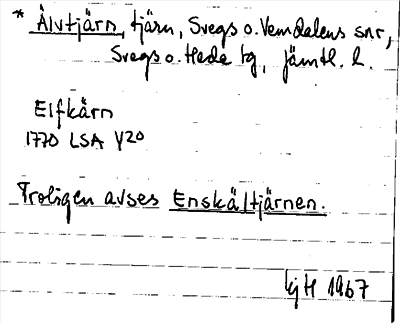 * Älvtjärn, tjärn, Svegs o. Vemdalens snr,
Svegs o. Hede tg, Jämtl. l.
Elfkärn
1770 LSA Y20
Troligen avses Enskältjärnen.
LjH 1967